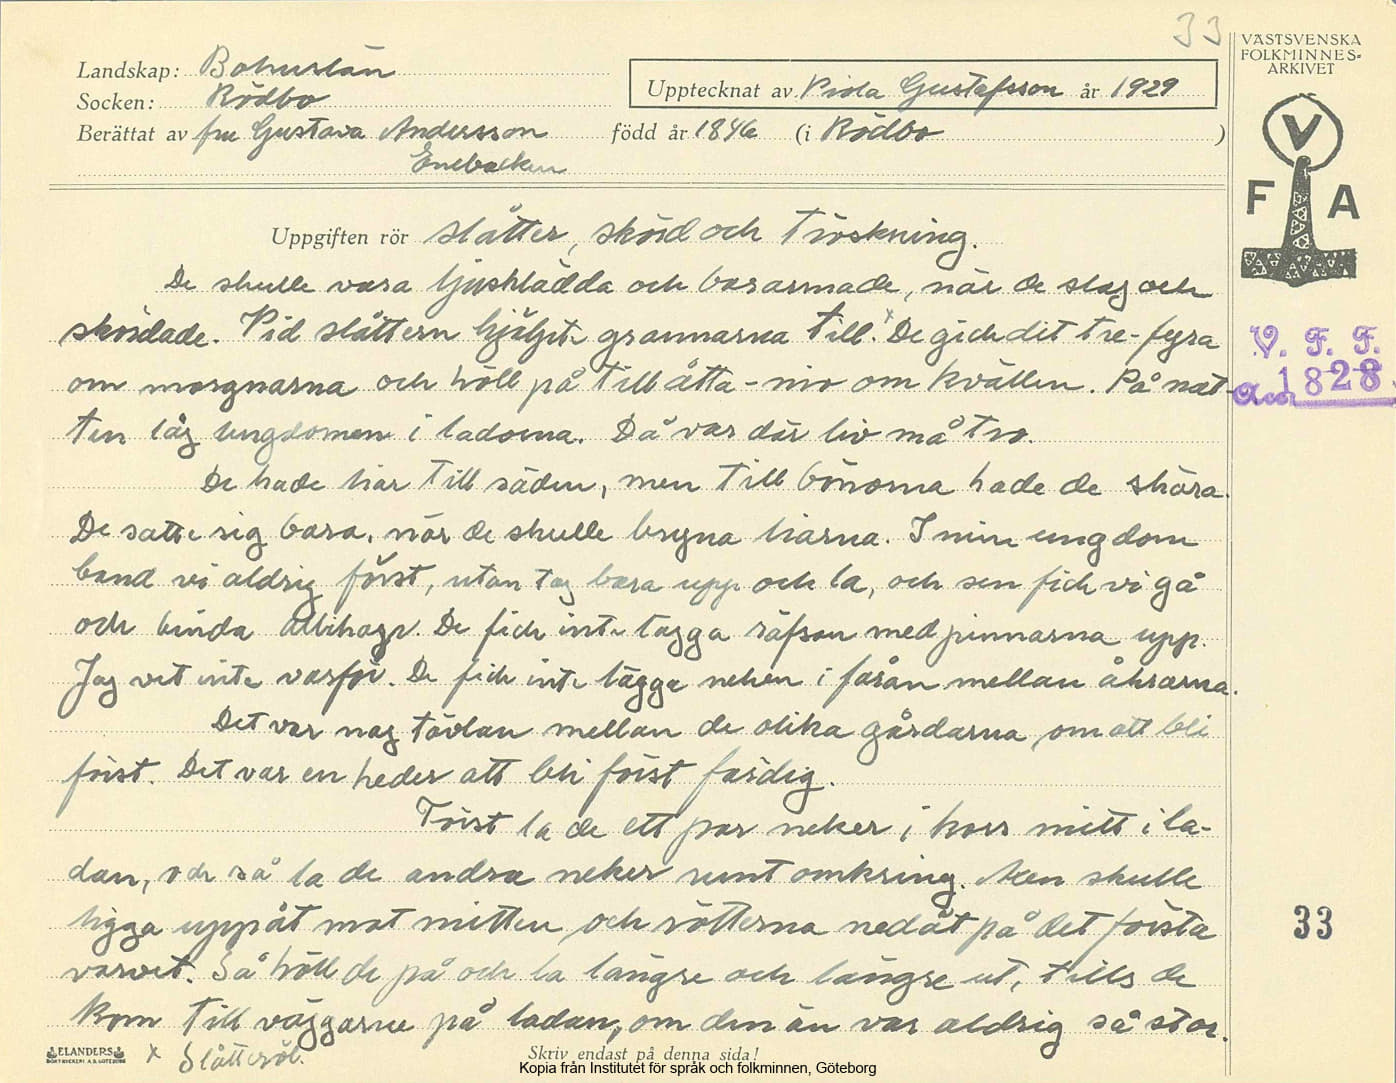 33
VÄSTSVENSKA
FOLKMINNES=
ARKIVET
Landskap: Bohuslän
Socken: Rödbo
Upptecknat av Viola Gustafsson år 1929
Berättat av fru Gustava Andersson född år 1846 (i Rödbo )
Enebacken
V
F A
Uppgiften rör slåtter, skörd och tröskning.
De skulle vara ljusklädda och bararmade, när de slog och
skördade. Vid slåttern hjälpte grannarna till.x De gick dit tre-fyra
om morgnarna och höll på till åtta-nio om kvällen. På nat-
ten låg ungdomen i ladorna. Då var där liv må tro.
V. F. F.
Acc 1828.
De hade liar till säden, men till bönorna hade de skära.
De satte sig bara, när de skulle bryna liarna. I min ungdom
band vi aldrig först, utan tog bara upp och la, och sen fick vi gå
och binda allihoge. De fick inte lägga räfsan med pinnarna upp.
Jag vet inte varför. De fick inte lägga neken i fåran mellan åkrarna.
Det var nog tävlan mellan de olika gårdarna, om att bli
först. Det var en heder att bli först färdig.
Först la de ett par neker i kors mitt i la-
dan, och så la de andra neker runt omkring. Axen skulle
ligga uppåt mot mitten och rötterna nedåt på det första
varvet. Så höll de på och la längre och längre ut, tills de
kom till väggarne på ladan, om den än var aldrig så stor.
33
ELANDERS
BOKTRYCKERI A.B. GÖTEBORG
x Slåtteröl.
Skriv endast på denna sida!
Kopia från Institutet för språk och folkminnen, Göteborg